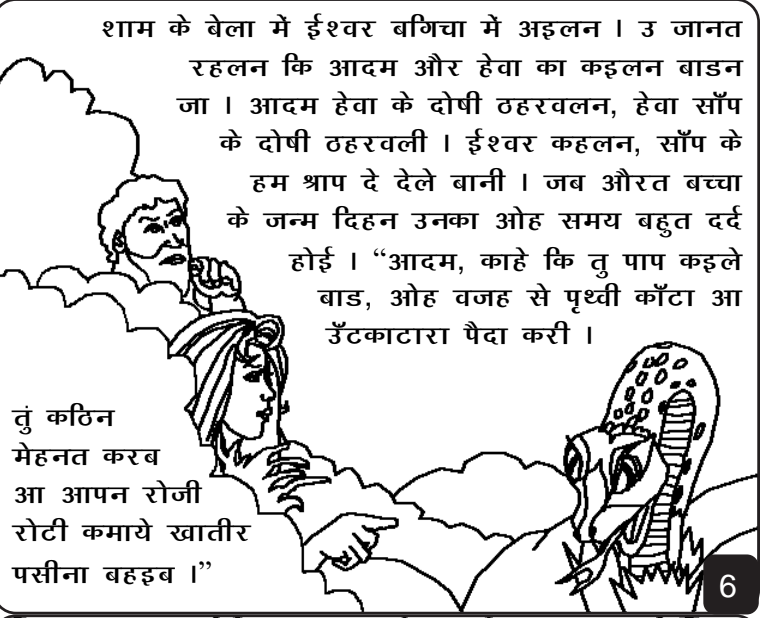 शाम के बेला में ईश्वर बगिचा में अइलन । उ जानत
रहलन कि आदम और हेवा का कइलन बाडन
जा । आदम हेवा के दोषी ठहरवलन, हेवा साँप
के दोषी ठहरवली । ईश्वर कहलन, साँप के
हम श्राप दे देले बानी । जब औरत बच्चा
के जन्म दिहन उनका ओह समय बहुत दर्द
होई । “आदम, काहे कि तु पाप कइले
बाड, ओह वजह से पृथ्वी काँटा आ
उँटकाटारा पैदा करी ।
तुं कठिन
मेहनत करब
आ आपन रोजी
रोटी कमाये खातीर
पसीना बहइब ।”
6